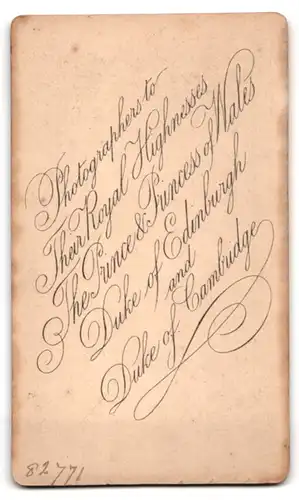 Photographers to
Their Royal Highnesses
The Prince & Princess of Wales
Duke of Edinburgh
and
Duke of Cambridge
82771